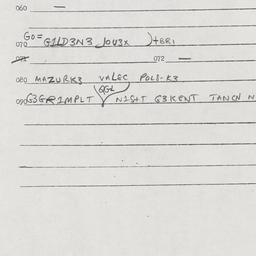 060 —
GO=
070 G1LD3N3 JOU3X )TERI
071 072 —
080 MAZURK3 VALEC POL8-K3
QGL
090 G3GR1MPLT N1S+T G3KENT TANCN N